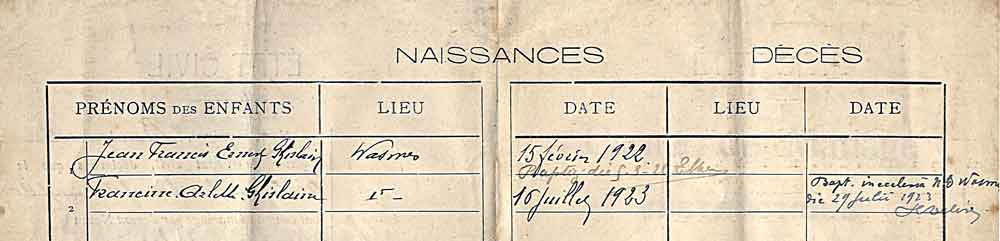 NAISSANCES DÉCÈS
PRÉNOMS DES ENFANTS LIEU DATE LIEU DATE
1 Jean Francis Ernest Ghislain Wasmes 15 février 1922
2 Francine Arlette Ghislaine 16 juillet 1923
Bapt. in ecclesia N.D Wasmes
die 29 julii 1923